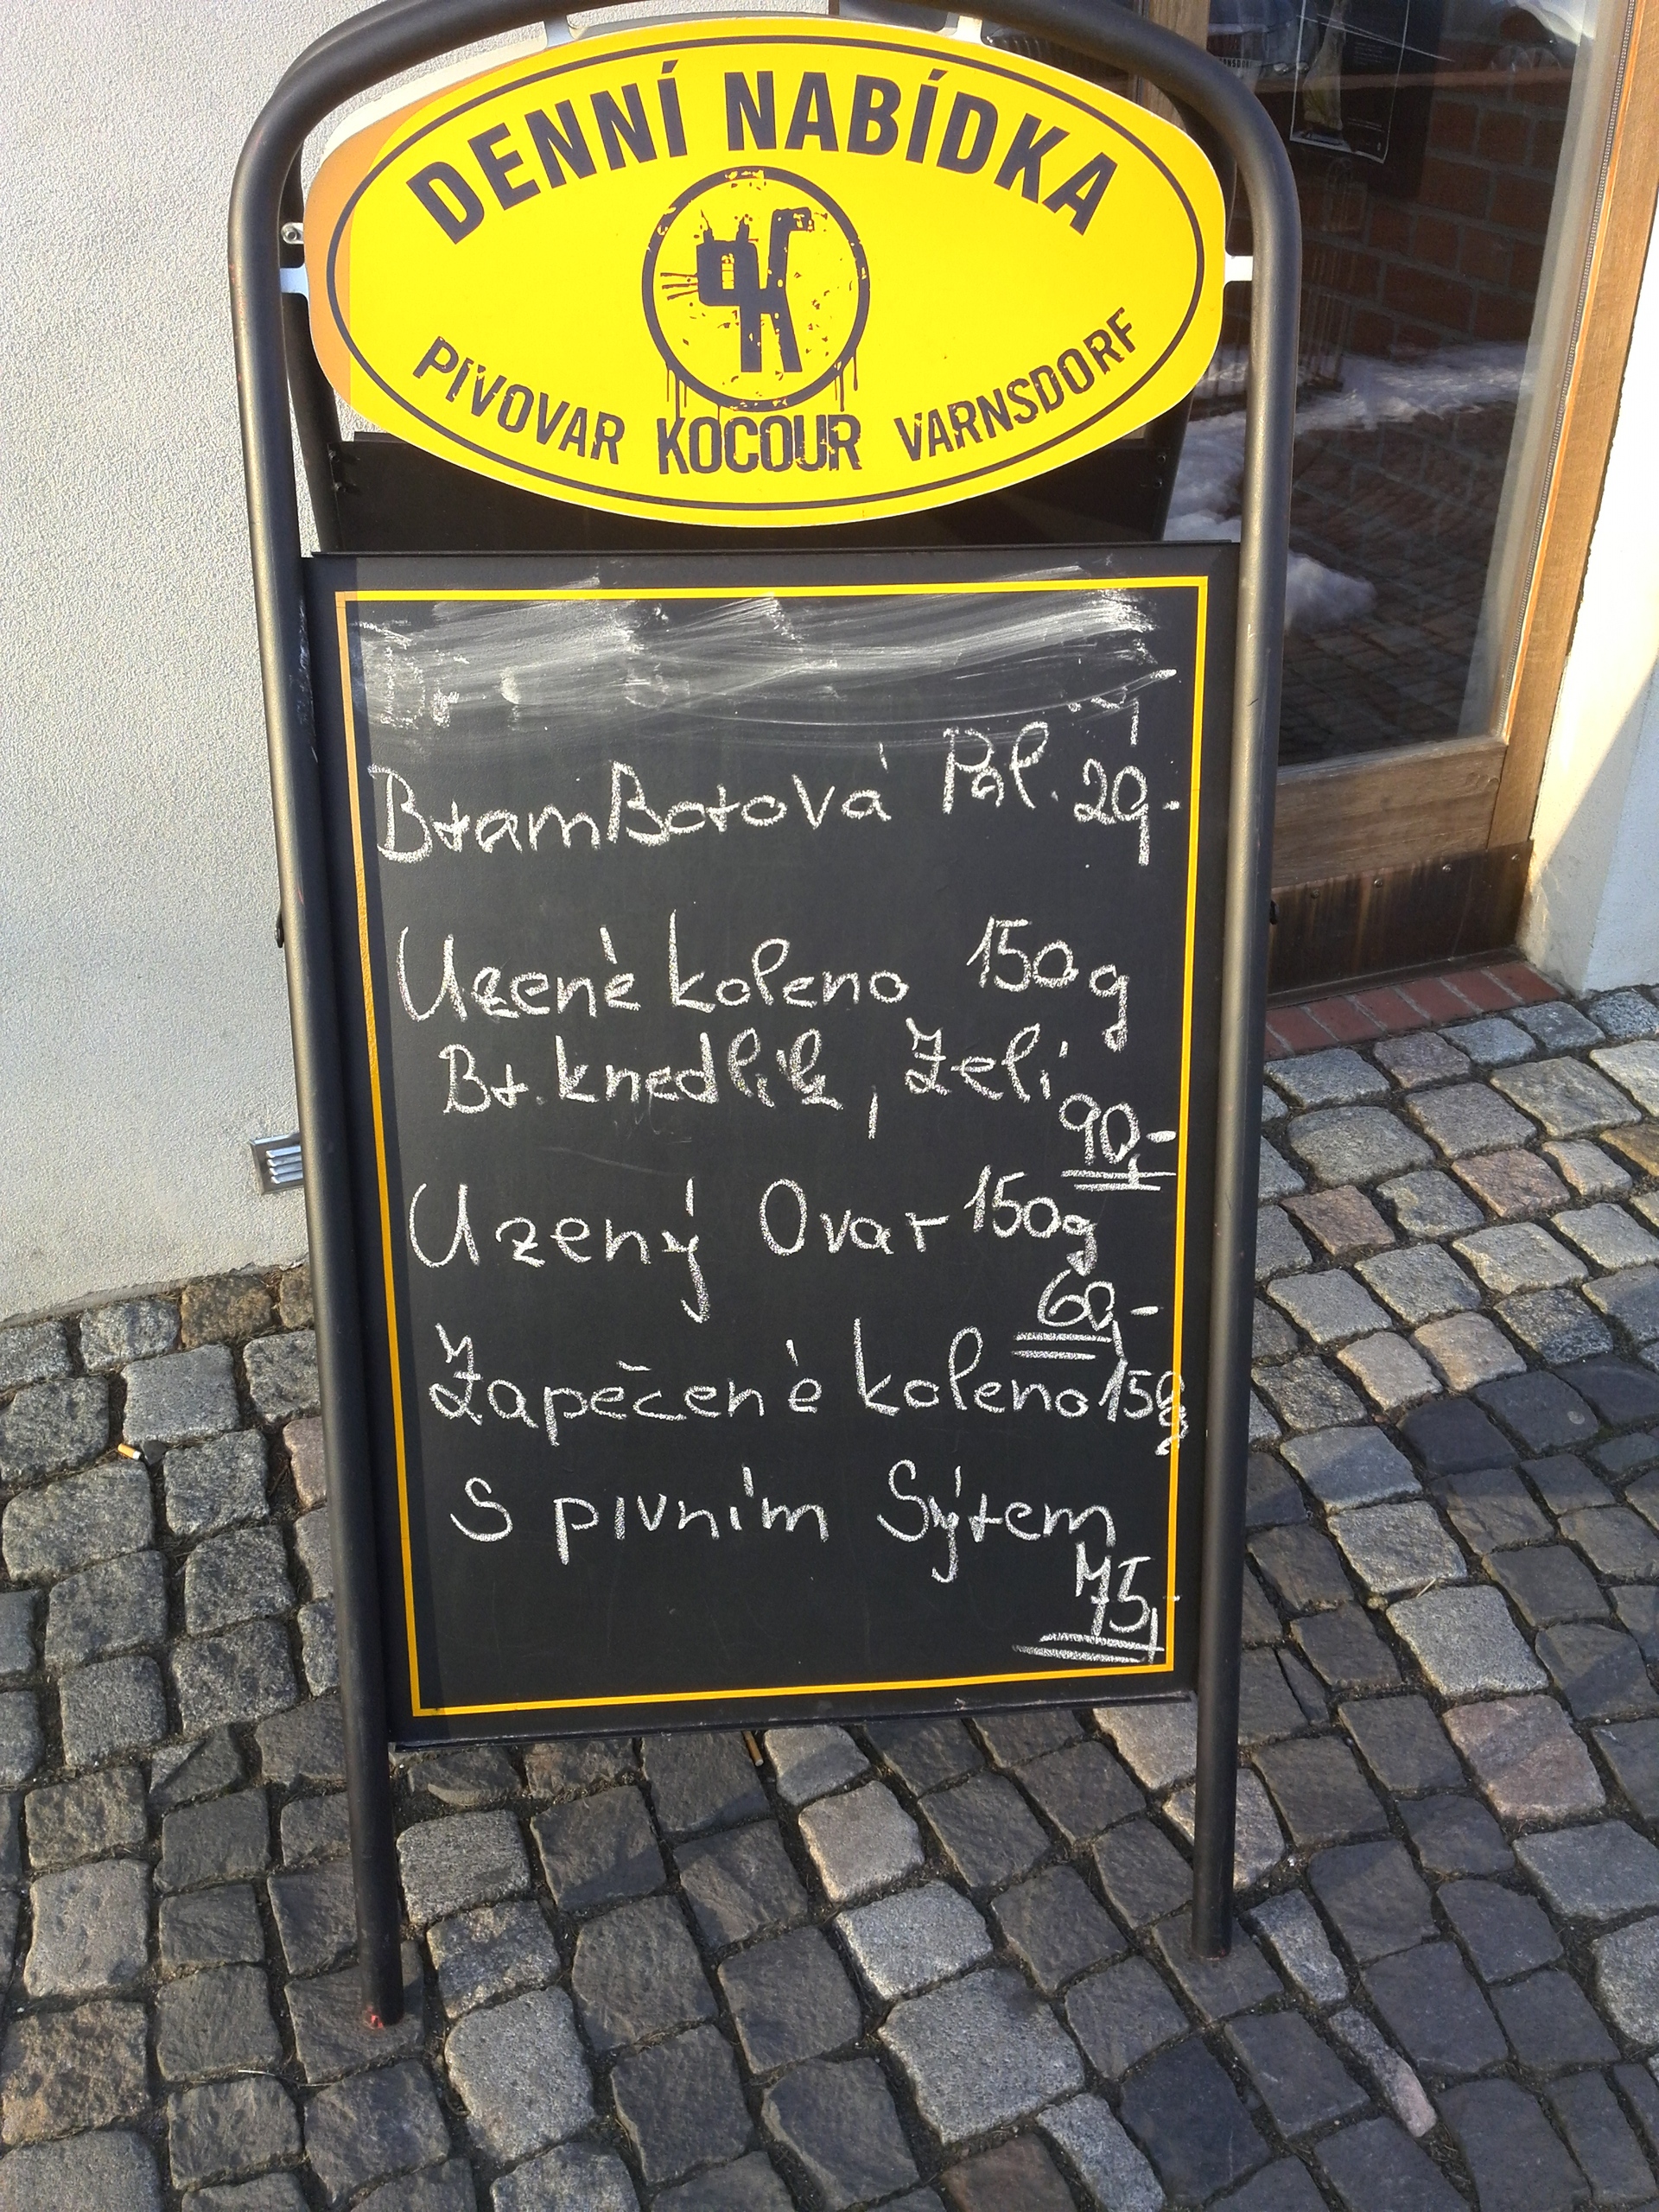 DENNÍ NABÍDKA
PIVOVAR KOCOUR VARNSDORF
Bramborová Pol. 20,-
Uzené koleno 150g
Br. knedlík, Zelí
90,-
Uzený Ovar 150g
60,-
Zapečené koleno 150g
S pivním Sýrem
75,-